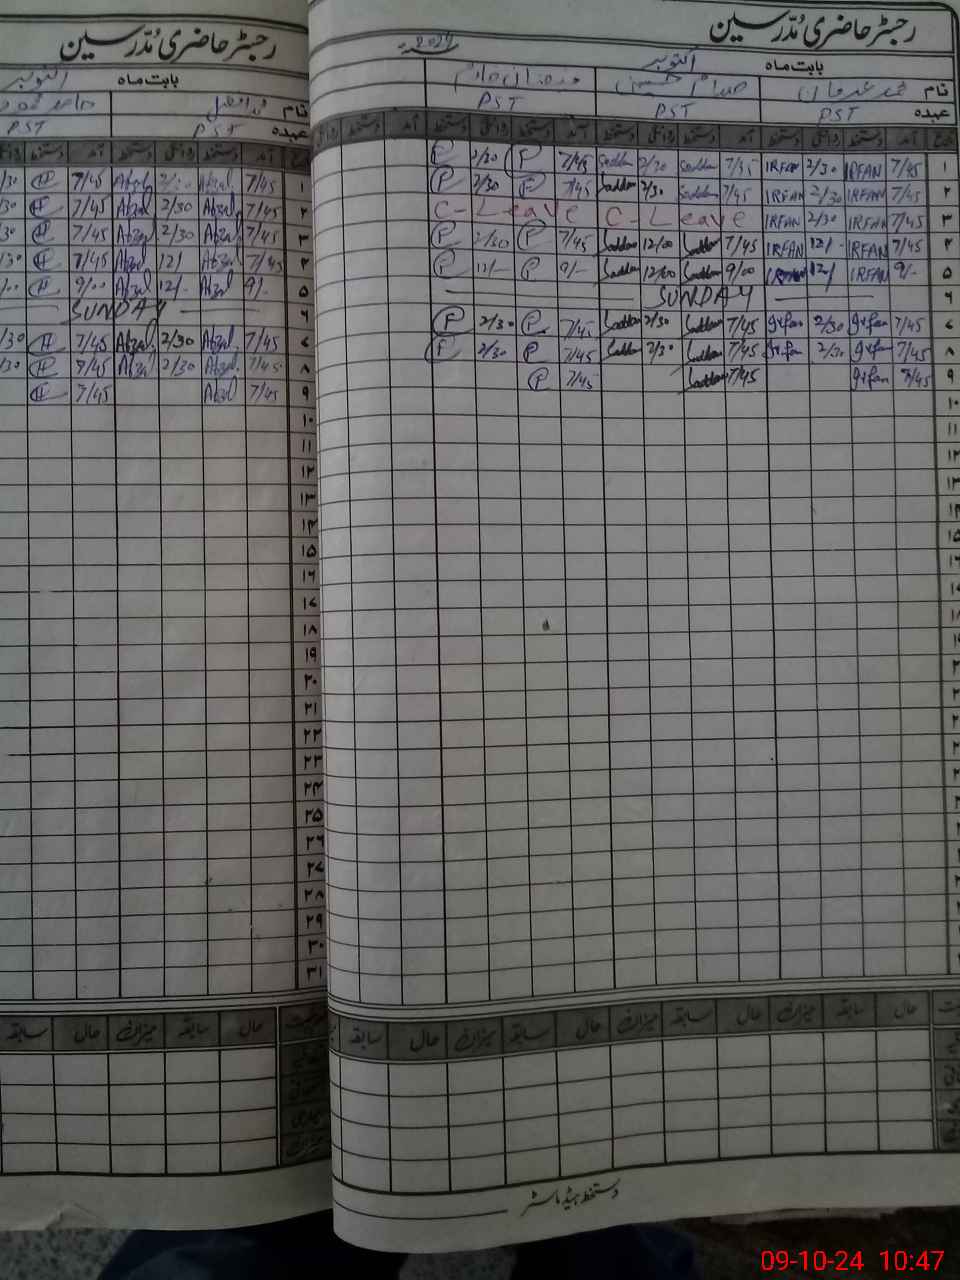 رجسٹر حاضری مُدّرسین
بابت ماہ اکتوبر 2024
نام محمد عرفان صدام حسین
عہدہ PST PST PST
آمد دستخط روانگی دستخط آمد دستخط روانگی دستخط آمد دستخط روانگی دستخط آمد دستخط
۱ 7/45 IRFAN 2/30 IRFAN 7/35 Saddam 2/30 Saddam 7/45 P 2/30 P
۲ 7/45 IRFAN 2/30 IRFAN 7/45 Saddam 2/30 Saddam 7/45 P 2/30 P
۳ 7/45 IRFAN 2/30 IRFAN C-Leave C-Leave
۴ 7/45 IRFAN 12/- IRFAN 7/45 Saddam 12/00 Saddam 7/45 P 2/30 P
۵ 9/- IRFAN 12/ IRFAN 9/00 Saddam 12/00 Saddam 9/- P 12/- P
۶ SUNDAY
۷ 7/45 Irfan 2/30 Irfan 7/45 Saddam 2/30 Saddam 7/45 P 2/30 P
۸ 7/45 Irfan 2/30 Irfan 7/45 Saddam 2/30 Saddam 7/45 P 2/30 P
۹ 7/45 Irfan 7/45 Saddam 7/45 P
حال سابقہ میزان حال سابقہ میزان حال سابقہ میزان حال سابقہ
دستخط ہیڈ ماسٹر
رجسٹر حاضری مُدّرسین
بابت ماہ اکتوبر
نام محمد افضل
عہدہ PST PST
آمد دستخط روانگی دستخط آمد دستخط
۱ 7/45 Afzal 2/30 Afzal 7/45 H /30
۲ 7/45 Afzal 2/30 Afzal 7/45 H /30
۳ 7/45 Afzal 2/30 Afzal 7/45 H /30
۴ 7/45 Afzal 12/ Afzal 7/45 H /30
۵ 9/- Afzal 12/- Afzal 9/00 H /00
۶ SUNDAY
۷ 7/45 Afzal 2/30 Afzal 7/45 H /30
۸ 7/45 Afzal 2/30 Afzal 7/45 H /30
۹ 7/45 Afzal 7/45 H
۱۰
۱۱
۱۲
۱۳
۱۴
۱۵
۱۶
۱۷
۱۸
۱۹
۲۰
۲۱
۲۲
۲۳
۲۴
۲۵
۲۶
۲۷
۲۸
۲۹
۳۰
۳۱
حال سابقہ میزان حال سابقہ
09-10-24 10:47